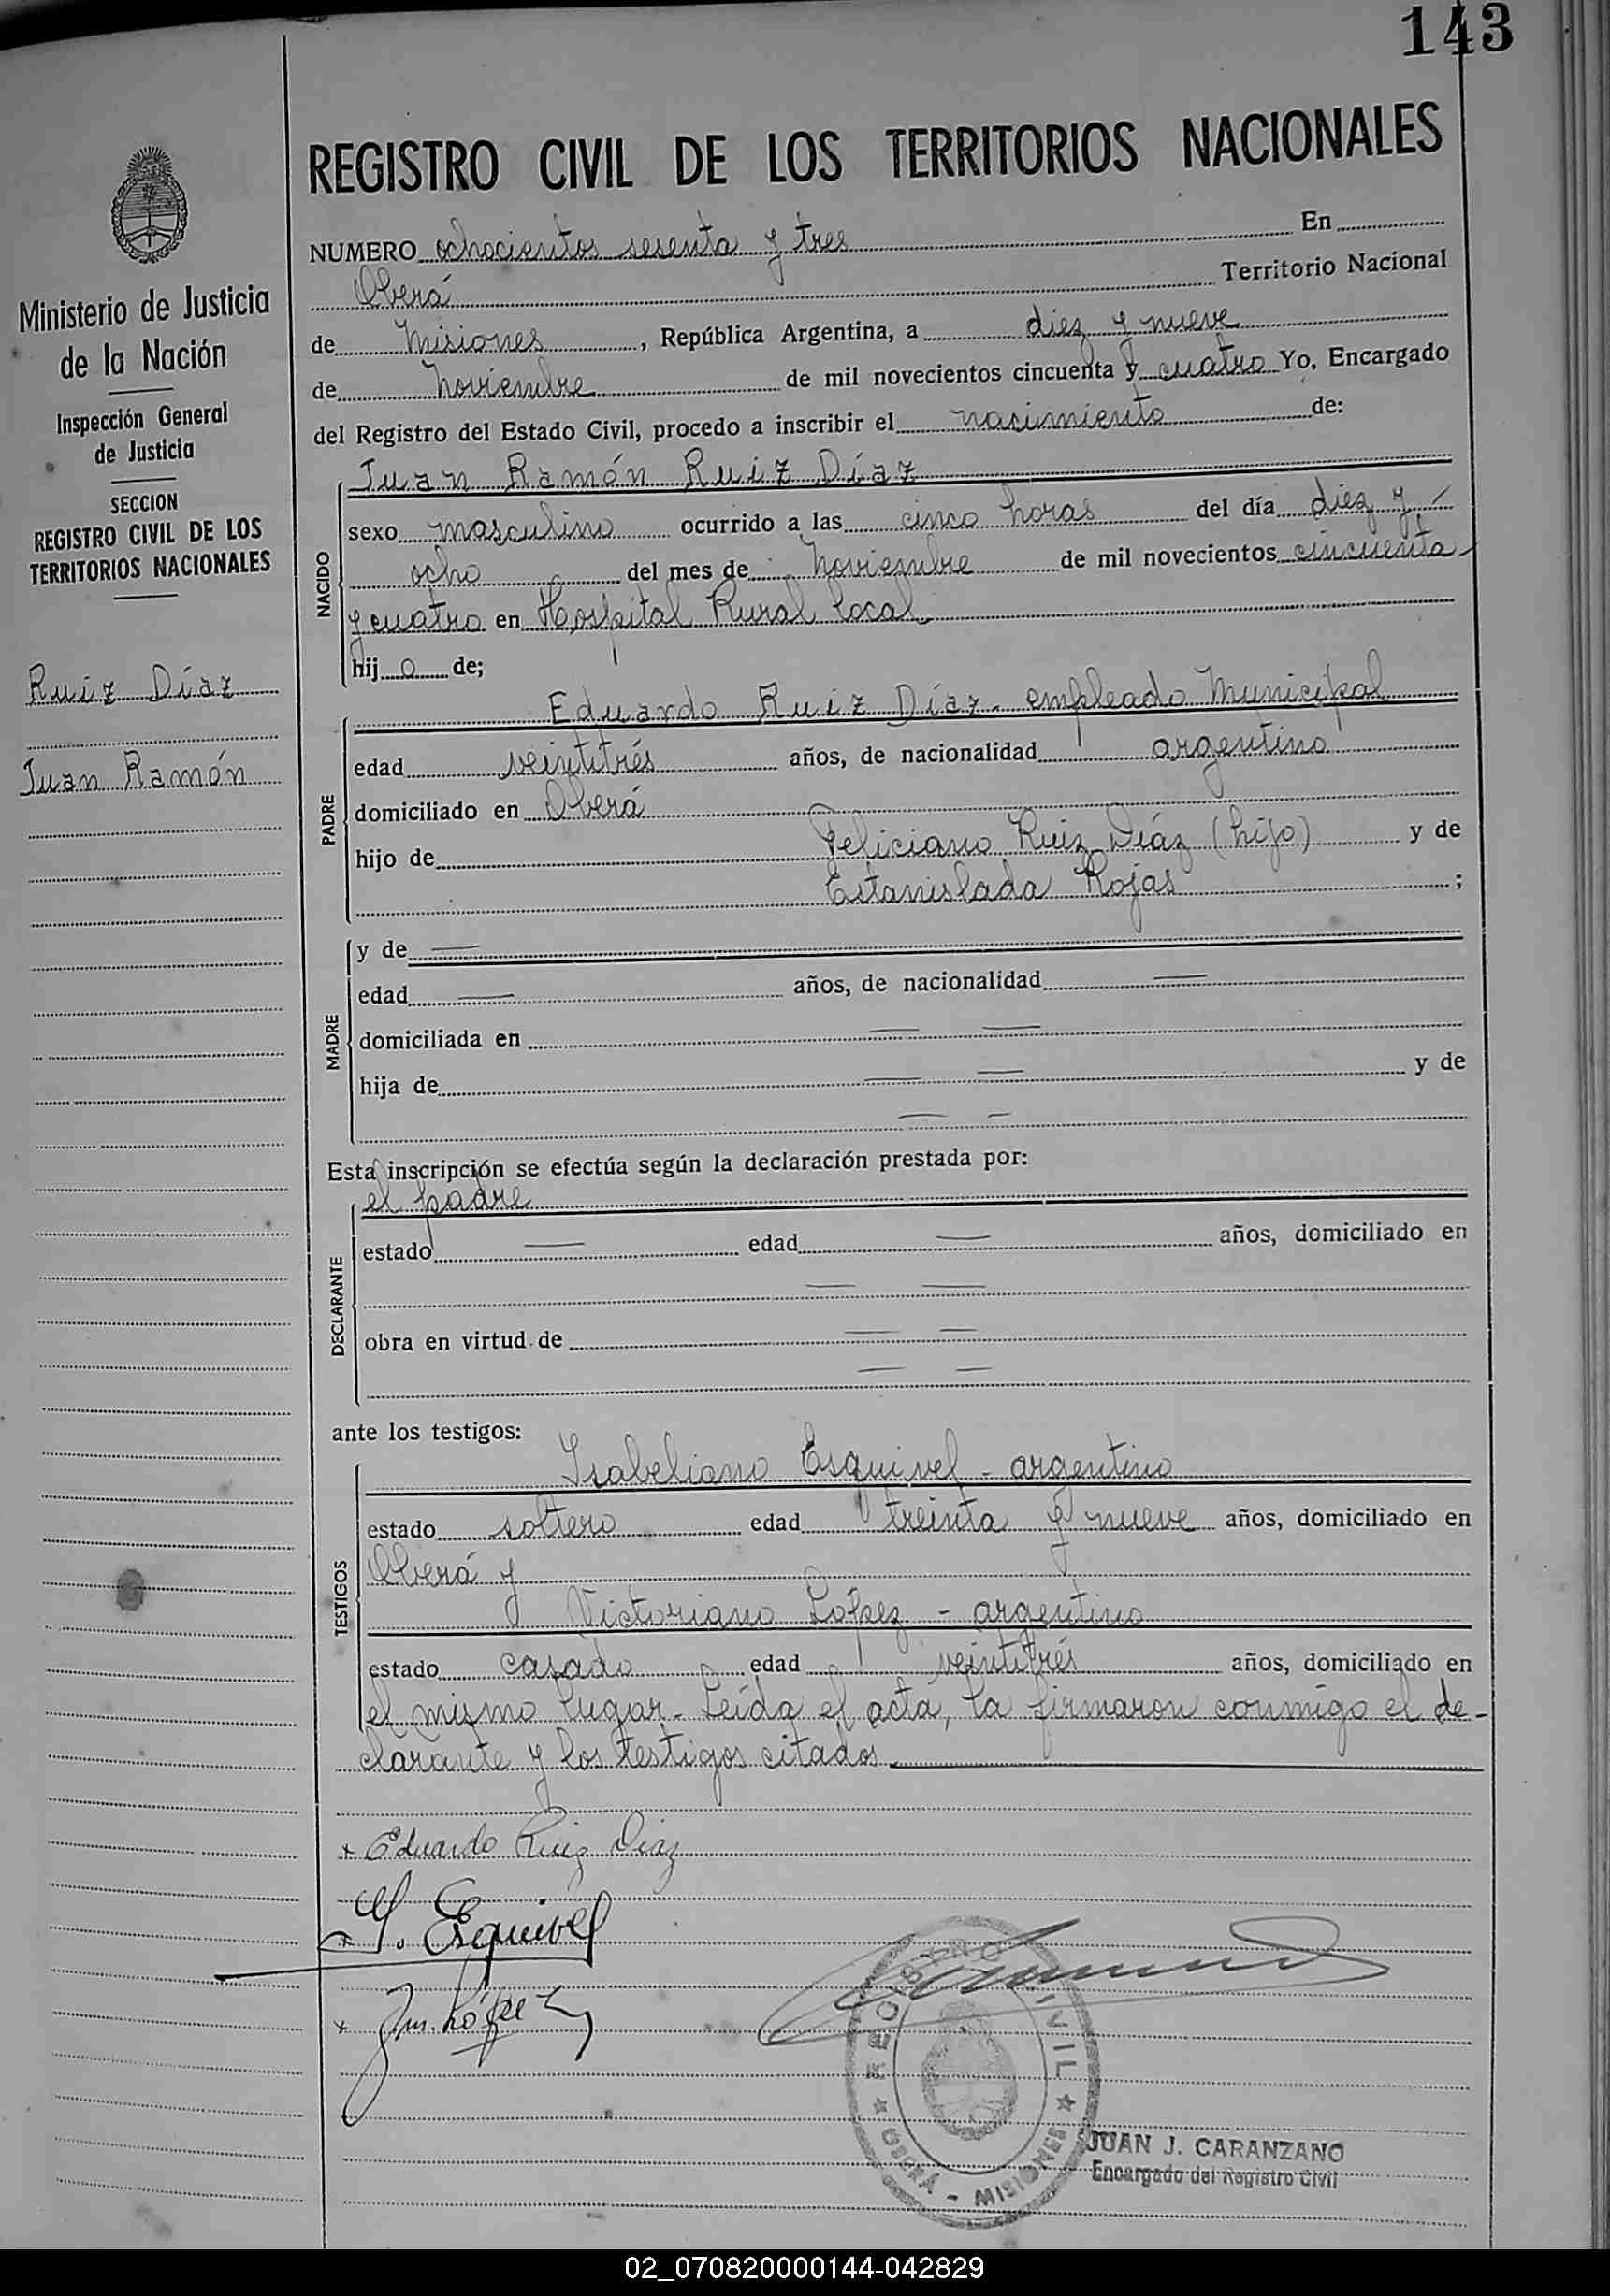 143
REGISTRO CIVIL DE LOS TERRITORIOS NACIONALES
Ministerio de Justicia
de la Nación
Inspección General
de Justicia
SECCION
REGISTRO CIVIL DE LOS
TERRITORIOS NACIONALES
Ruiz Díaz
Juan Ramón
NUMERO ochocientos sesenta y tres En
Oberá Territorio Nacional
de Misiones, República Argentina, a diez y nueve
de Noviembre de mil novecientos cincuenta y cuatro Yo, Encargado
del Registro del Estado Civil, procedo a inscribir el nacimiento de:
NACIDO
Juan Ramón Ruiz Díaz
sexo masculino ocurrido a las cinco horas del día diez y
ocho del mes de Noviembre de mil novecientos cincuenta
y cuatro en Hospital Rural local
hij o de;
PADRE
Eduardo Ruiz Díaz - empleado Municipal
edad veintitrés años, de nacionalidad argentino
domiciliado en Oberá
hijo de Feliciano Ruiz Díaz (hijo) y de
Estanislada Rojas ;
MADRE
y de —
edad — años, de nacionalidad —
domiciliada en — —
hija de — — y de
— —
Esta inscripción se efectúa según la declaración prestada por:
DECLARANTE
el padre
estado — edad — años, domiciliado en
— —
obra en virtud de — —
— —
ante los testigos:
TESTIGOS
Isabeliano Esquivel - argentino
estado soltero edad treinta y nueve años, domiciliado en
Oberá y
Victoriano López - argentino
estado casado edad veintitrés años, domiciliado en
el mismo lugar - Leída el acta, la firmaron conmigo el de-
clarante y los testigos citados.
x Eduardo Ruiz Diaz
x Y. Esquivel
x López
REGISTRO CIVIL
OBERÁ - MISIONES
JUAN J. CARANZANO
Encargado del Registro Civil
02_070820000144-042829